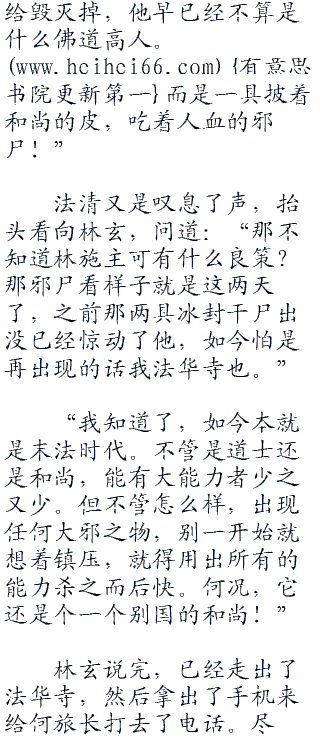 给毁灭掉，他早已经不算是
什么佛道高人。
(www.hcihci66.com){有意思
书院更新第一}而是一具披着
和尚的皮，吃着人血的邪
尸！”
法清又是叹息了声，抬
头看向林玄，问道：“那不
知道林施主可有什么良策？
那邪尸看样子就是这两天
了，之前那两具冰封干尸出
没已经惊动了他，如今怕是
再出现的话我法华寺也。”
“我知道了，如今本就
是末法时代。不管是道士还
是和尚，能有大能力者少之
又少。但不管怎么样，出现
任何大邪之物，别一开始就
想着镇压，就得用出所有的
能力杀之而后快。何况，它
还是个一个别国的和尚！”
林玄说完，已经走出了
法华寺，然后拿出了手机来
给何旅长打去了电话。尽